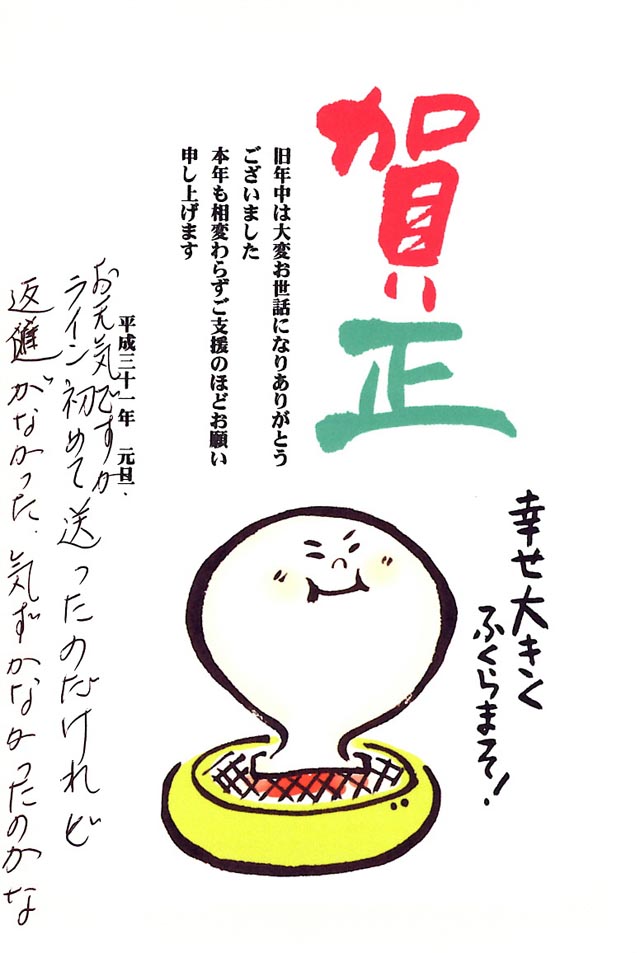 賀
正
幸せ大きく
ふくらまそ!
旧年中は大変お世話になりありがとう
ございました
本年も相変わらずご支援のほどお願い
申し上げます
平成三十一年 元旦
お元気ですか.
ライン初めて送ったのだけれど
返進がなかった.気ずかなかったのかな